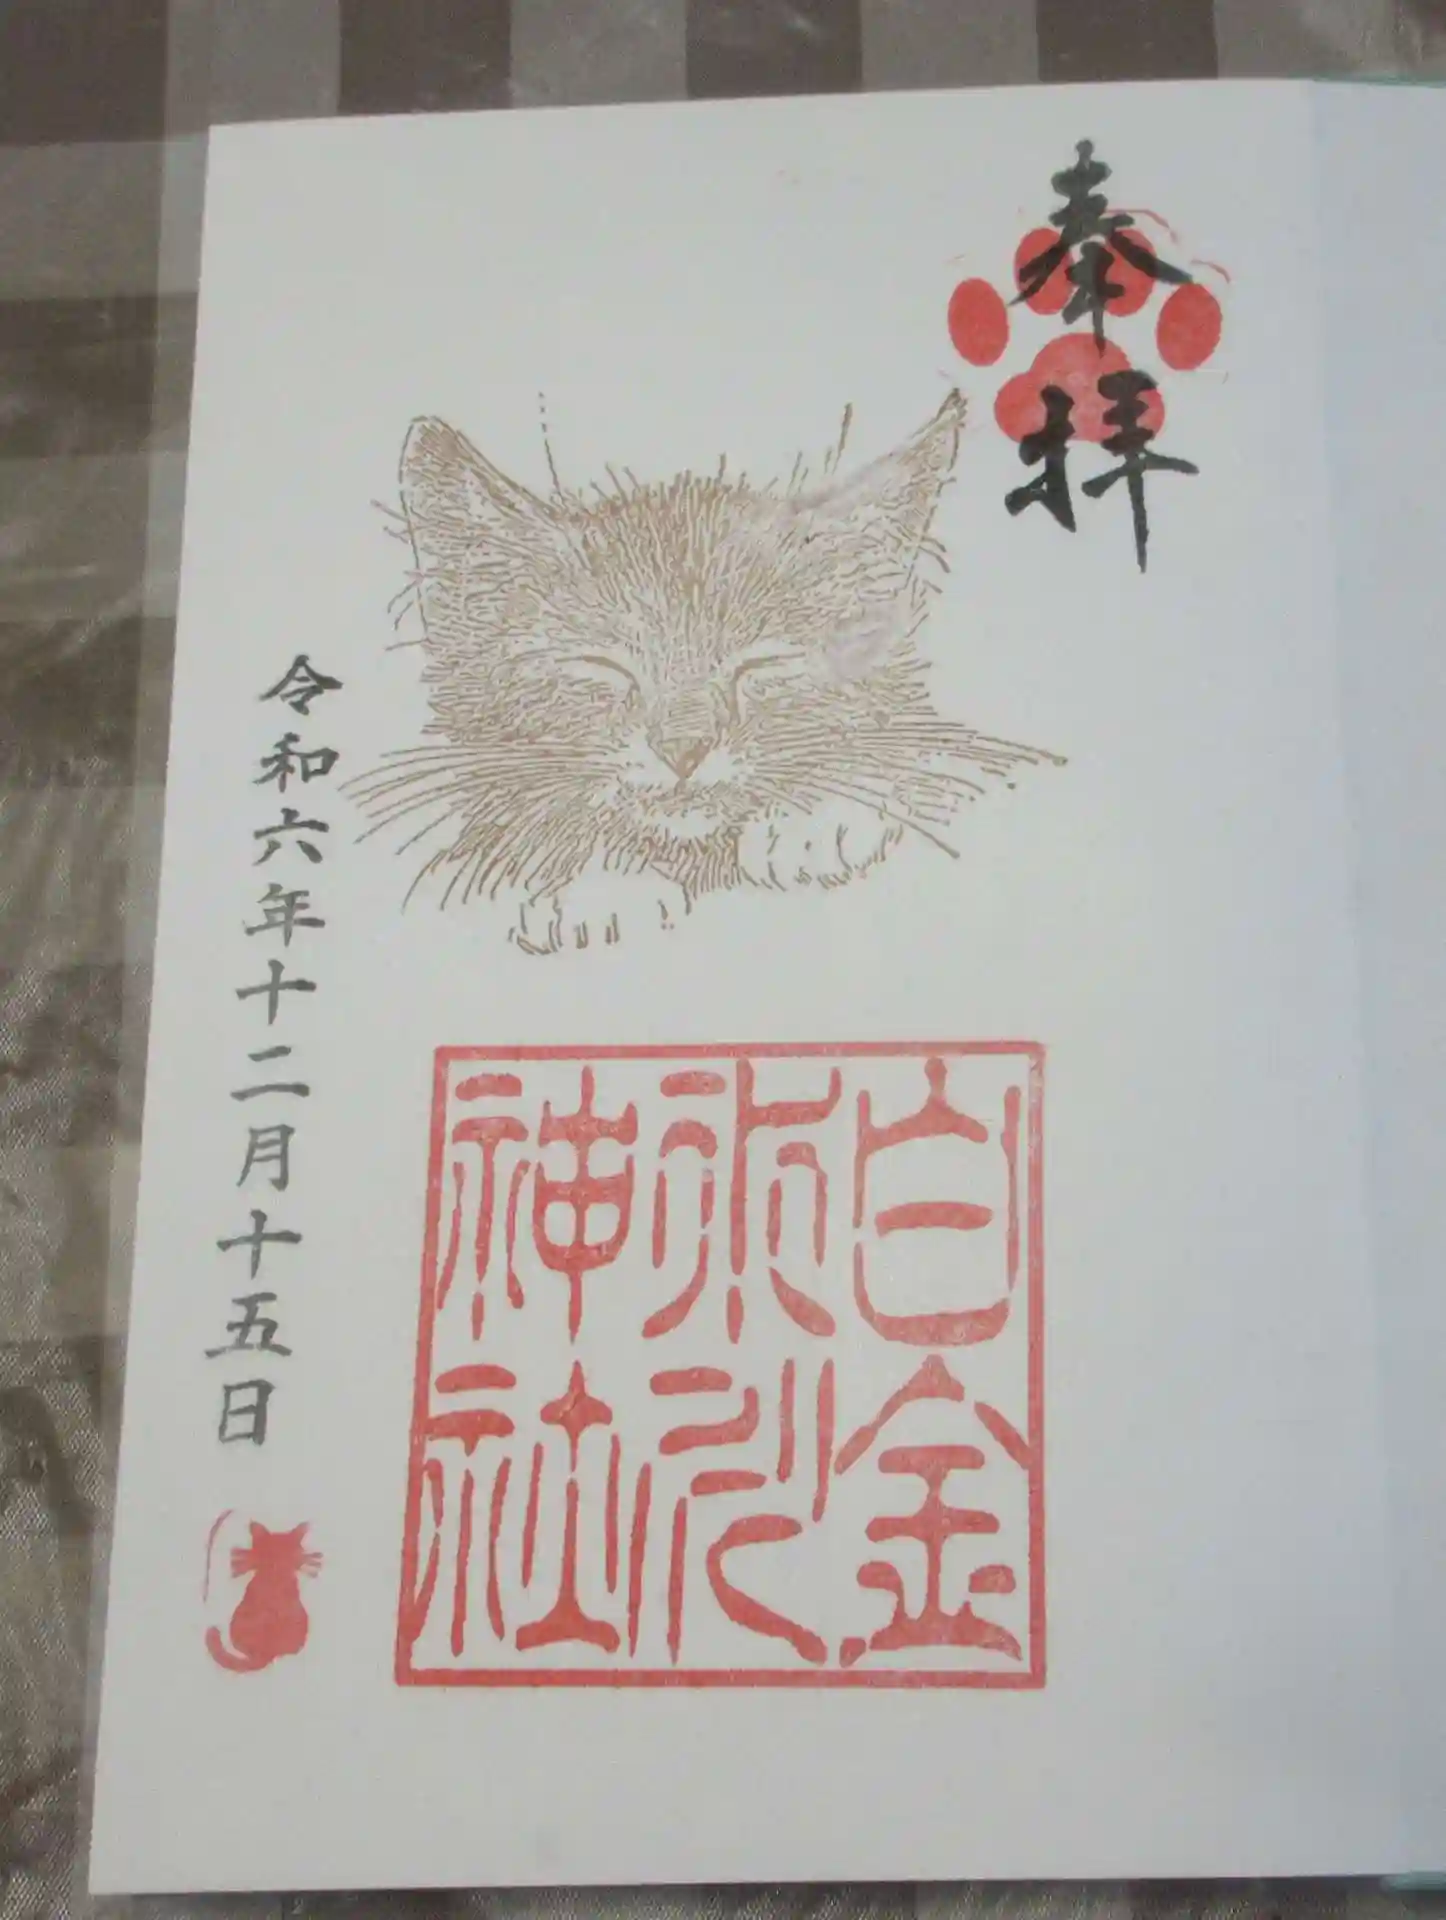 奉拝
白金
氷川
神社
令和六年十二月十五日